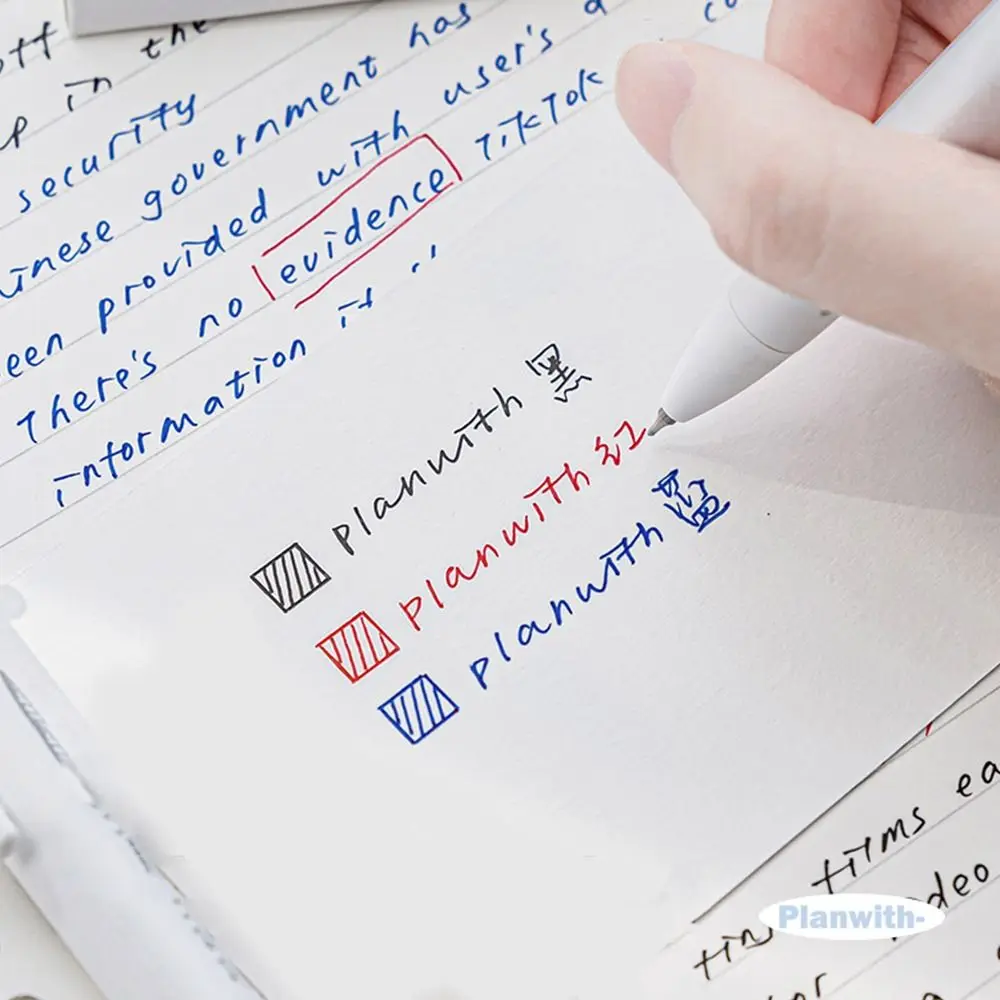 off
in the
security
government has
een provided with user's
There's no evidence TikTok
information it
planwith 黑
planwith 红
planwith 蓝
films ea
Planwith-